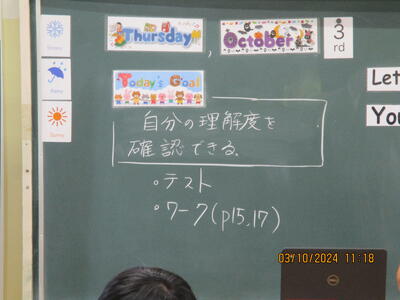 Snowy
Rainy
Sunny
Thursday
,
October
3
rd
Today's Goal
Let
You
自分の理解度を
確認できる.
・テスト
・ワーク(p15,17)
DELL
03/10/2024 11:18